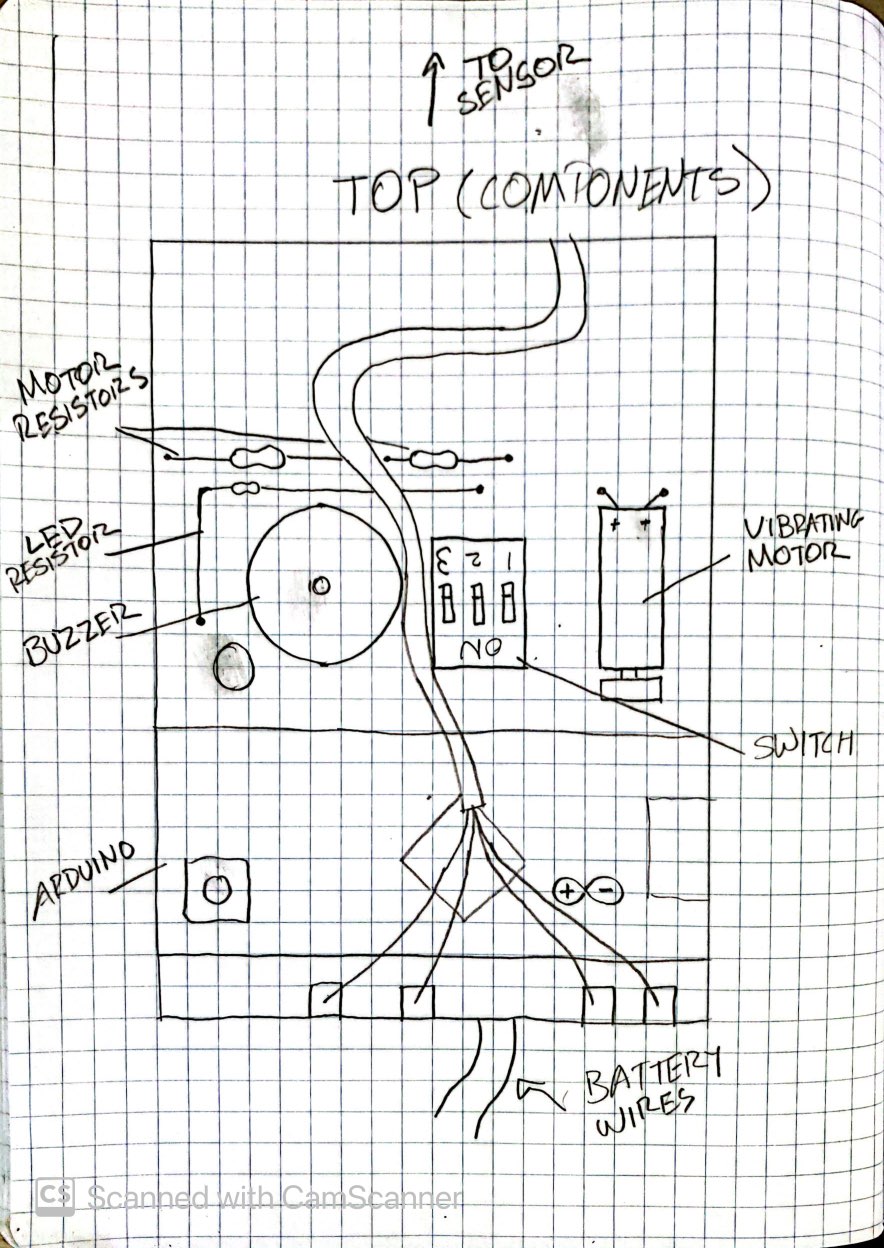 TO
SENSOR
TOP (COMPONENTS)
MOTOR
RESISTORS
LED
RESISTOR
BUZZER
3 2 1
ON
+ +
VIBRATING
MOTOR
SWITCH
ARDUINO
+ -
BATTERY
WIRES
CS Scanned with CamScanner